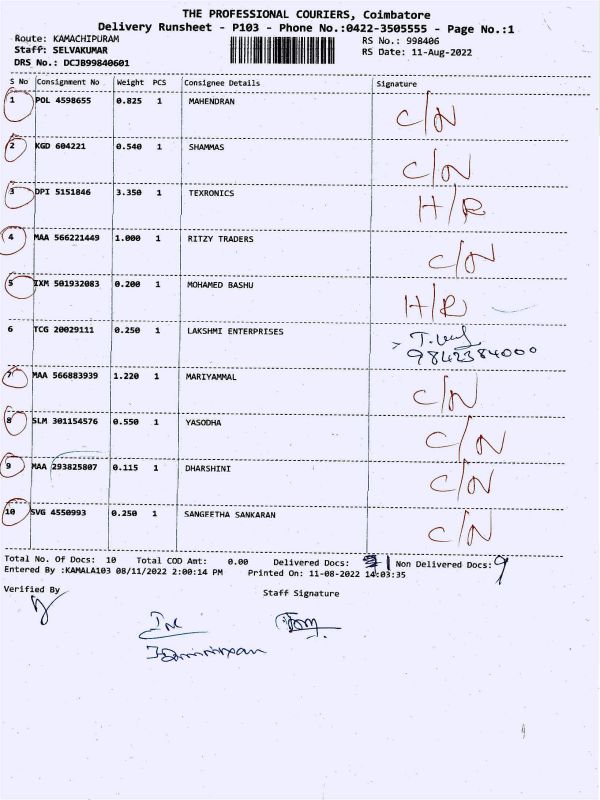 THE PROFESSIONAL COURIERS, Coimbatore
Delivery Runsheet - P103 - Phone No.:0422-3505555 - Page No.:1
Route: KAMACHIPURAM RS No.: 998406
Staff: SELVAKUMAR RS Date: 11-Aug-2022
DRS No.: DCJB99840601
S No Consignment No Weight PCS Consignee Details Signature
1 POL 4598655 0.825 1 MAHENDRAN C/N
2 KGD 604221 0.540 1 SHAMMAS C/N
3 DPI 5151846 3.350 1 TEXRONICS H/R
4 MAA 566221449 1.000 1 RITZY TRADERS C/N
5 IXM 501932083 0.200 1 MOHAMED BASHU H/R
6 TCG 20029111 0.250 1 LAKSHMI ENTERPRISES
9842384000
7 MAA 566883939 1.220 1 MARIYAMMAL C/N
8 SLM 301154576 0.550 1 YASODHA C/N
9 MAA 293825807 0.115 1 DHARSHINI C/N
10 SVG 4550993 0.250 1 SANGEETHA SANKARAN C/N
Total No. Of Docs: 10 Total COD Amt: 0.00 Delivered Docs: 1 Non Delivered Docs: 9
Entered By :KAMALA103 08/11/2022 2:00:14 PM Printed On: 11-08-2022 14:03:35
Verified By Staff Signature